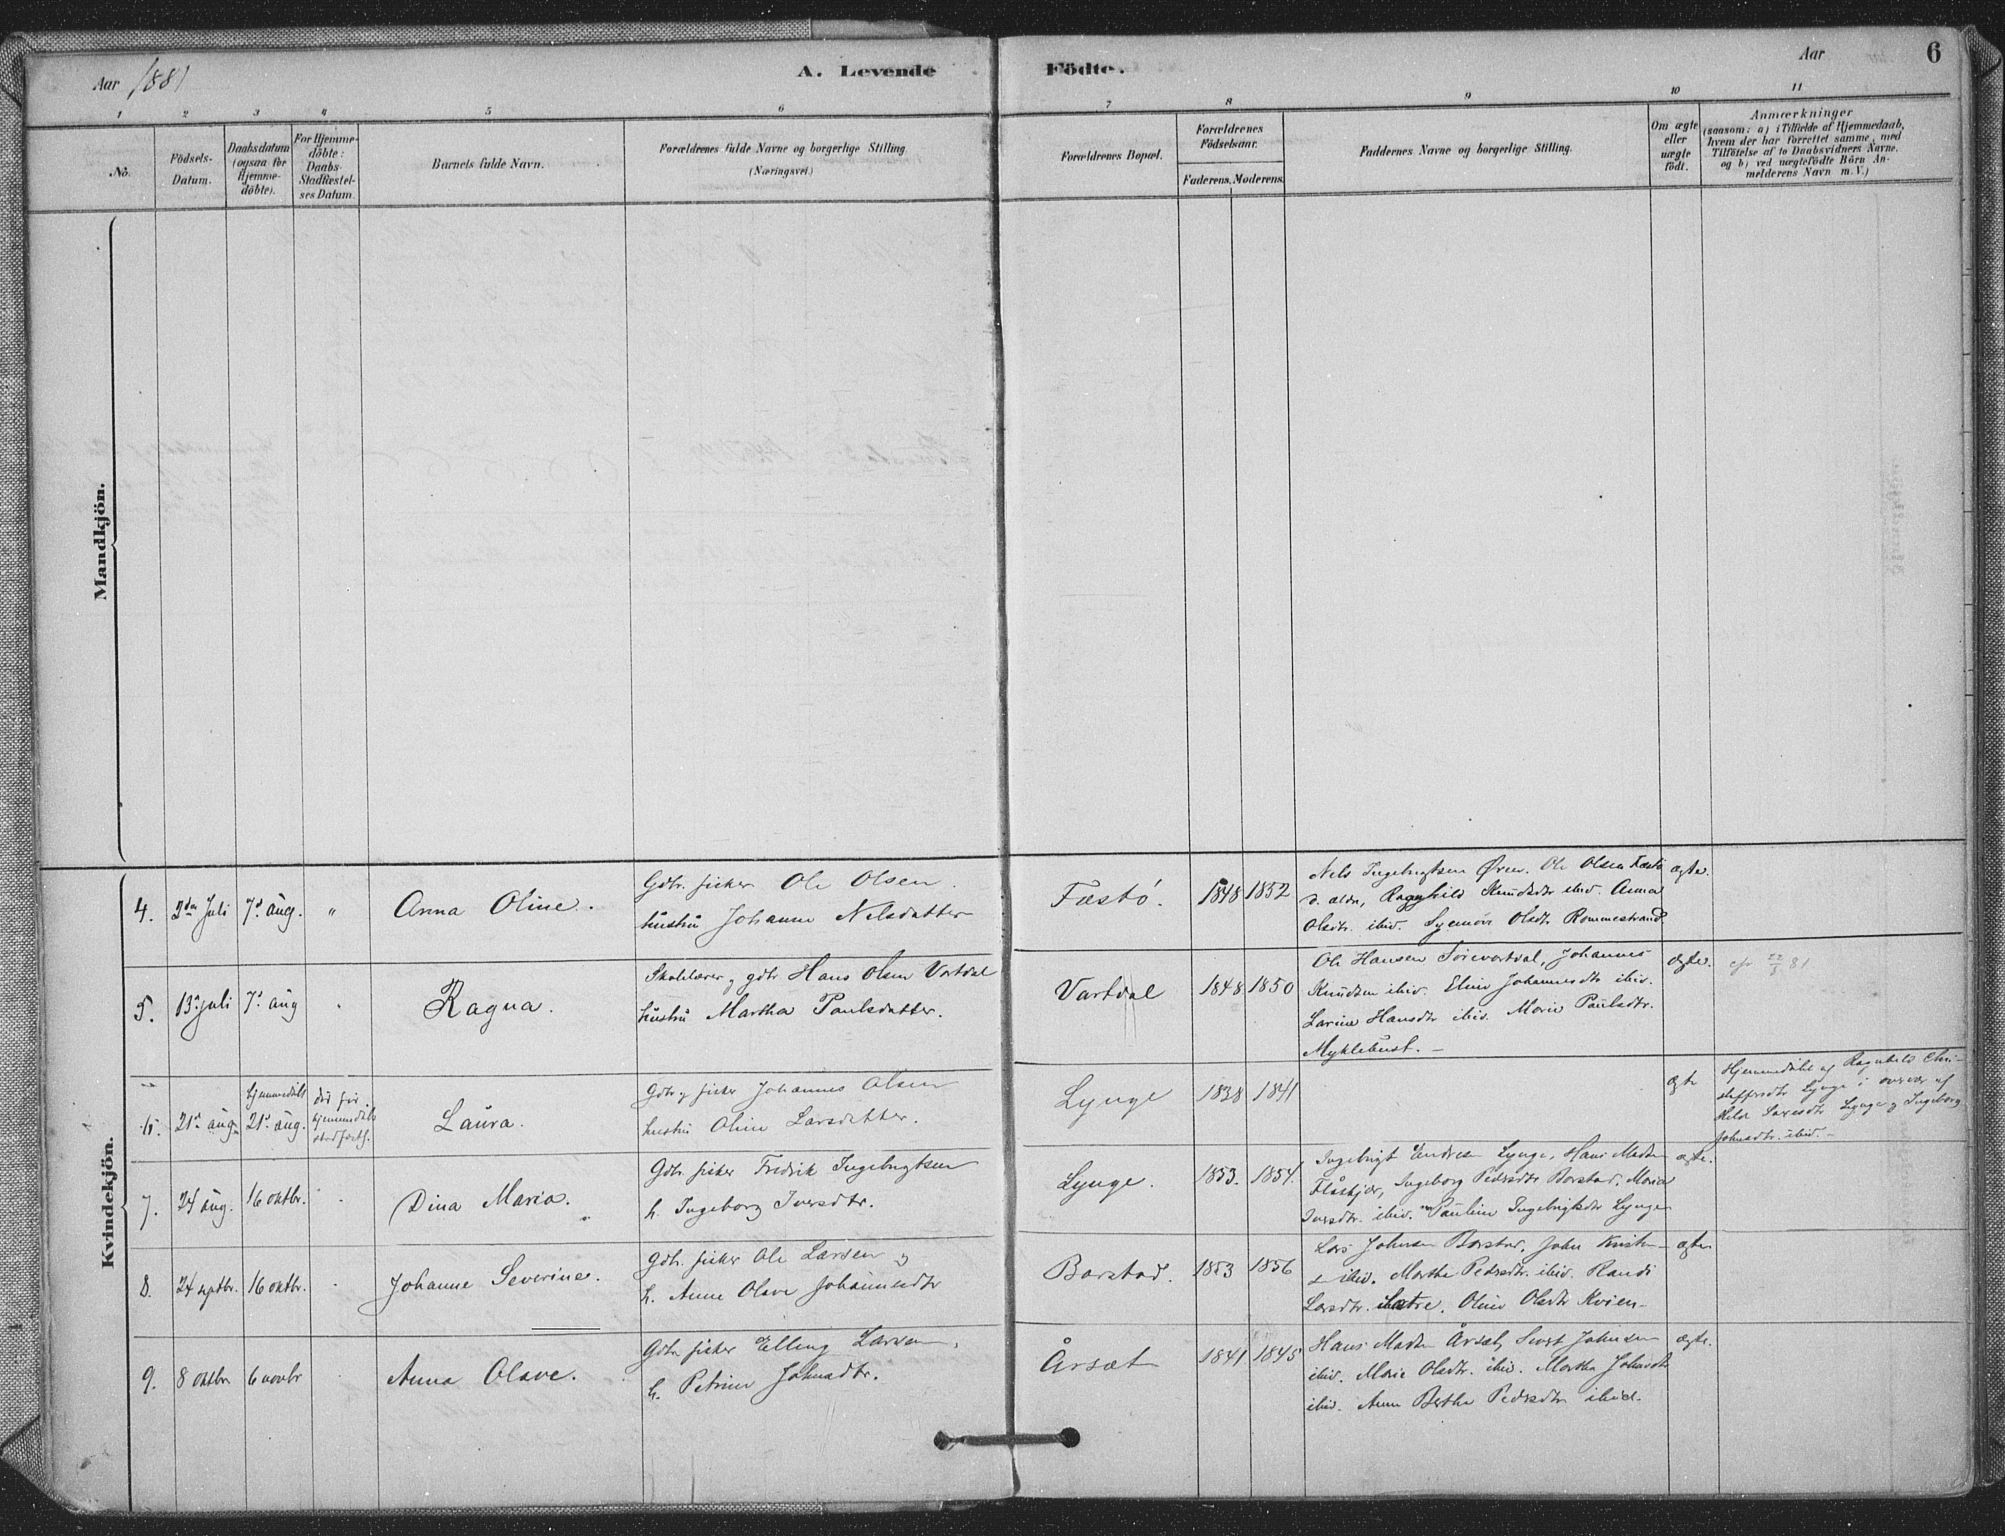 Aar 1881
A. Levende
Födte.
Aar
6
1 2 3 4 5 6 7 8 9 10 11
No.
Födsels-
Datum.
Daabsdatum
(ogsaa for
Hjemme-
döbte).
For Hjemme-
döbte:
Daabs-
Stadfæstel-
ses Datum.
Barnets fulde Navn.
Forældrenes fulde Navne og borgerlige Stilling
(Næringsvei.)
Forældrenes Bopæl.
Forældrenes
Födselsaar.
Faderens. Moderens.
Faddernes Navne og borgerlige Stilling.
Om ægte
eller
uægte
födt.
Anmærkninger
(saasom: a) i Tilfælde af Hjemmedaab,
hvem der har forrettet samme, med
Tilföielse af to Daabsvidners Navne,
og b) ved uægtefödte Börn An-
melderens Navn m. V.)
Mandkjön.
Kvindekjön.
4. 2den Juli 7d aug. " Anna Oline.
Gdbr. fisker Ole Olsen
hustru Johanne Nilsdatter
Fæstö. 1848 1852
Nels Ingebrigtsen Ören. Ole Olsen Fæstö
d. ældre, Ragnhild Knudsdtr ibid. Anna
Olsdtr. ibid. Olsdtr Rommestrand.
ægte.
5. 13d juli 7d aug " Ragna.
Skolelærer og gdbr Hans Olsen Vartdal
hustru Martha Paulsdatter.
Vartdal 1848 1850
Ole Hansen Sörevartdal, Johannes
Knudsen ibid. Eline Johannesdtr ibid.
Larine Hansdtr ibid. Marie Paulsdtr.
Myklebust. –
ægte.
6. 21d aug. hjemmedöbt 21d aug. död för
hjemmedåbs
stadfæst.
Laura.
Gdbr og fisker Johannes Olsen
hustru Oline Larsdatter.
Lynge 1838 1841
ægte
Hjemmedöbt af Ragnhild Chri-
stoffersdtr Lynge i overvær af
Lynge og Ingeborg
Johnsdtr. ibid. –
7. 24 aug. 16 oktbr. " Dina Maria.
Gdbr. fisker Fredrik Ingebrigtsen
h. Ingeborg Iversdtr.
Lynge. 1853. 1854.
Ingebrigt Endresen Lynge, Hans Madsen
Flåskjer, Ingeborg Pedersdtr Barstad, Maria
Iversdtr. ibid. Pauline Ingebrigtsdtr Lynge
ægte.
8. 24 septbr. 16 oktbr. " Johanne Severine.
Gdbr. fisker Ole Larsen og
h. Anne Olave Johannesdtr
Barstad. 1853 1856
Lars Johnsen Barstad, John
ibid. Marthe Pedersdtr. ibid. Randi
Larsdtr. Sætre. Oline Olsdtr Kvien-
ægte
9. 8 oktbr 6 novbr Anna Olave.
Gdbr fisker Elling Larsen,
h. Petrine Johnsdtr.
Årsæt 1841 1845
Hans Madsen Årsæt, Sivert Johnsen
ibid. Marie Olsdtr. ibid. Marthe Johnsdtr
ibid. Anne Berthe Pedersdtr ibid.
ægte.